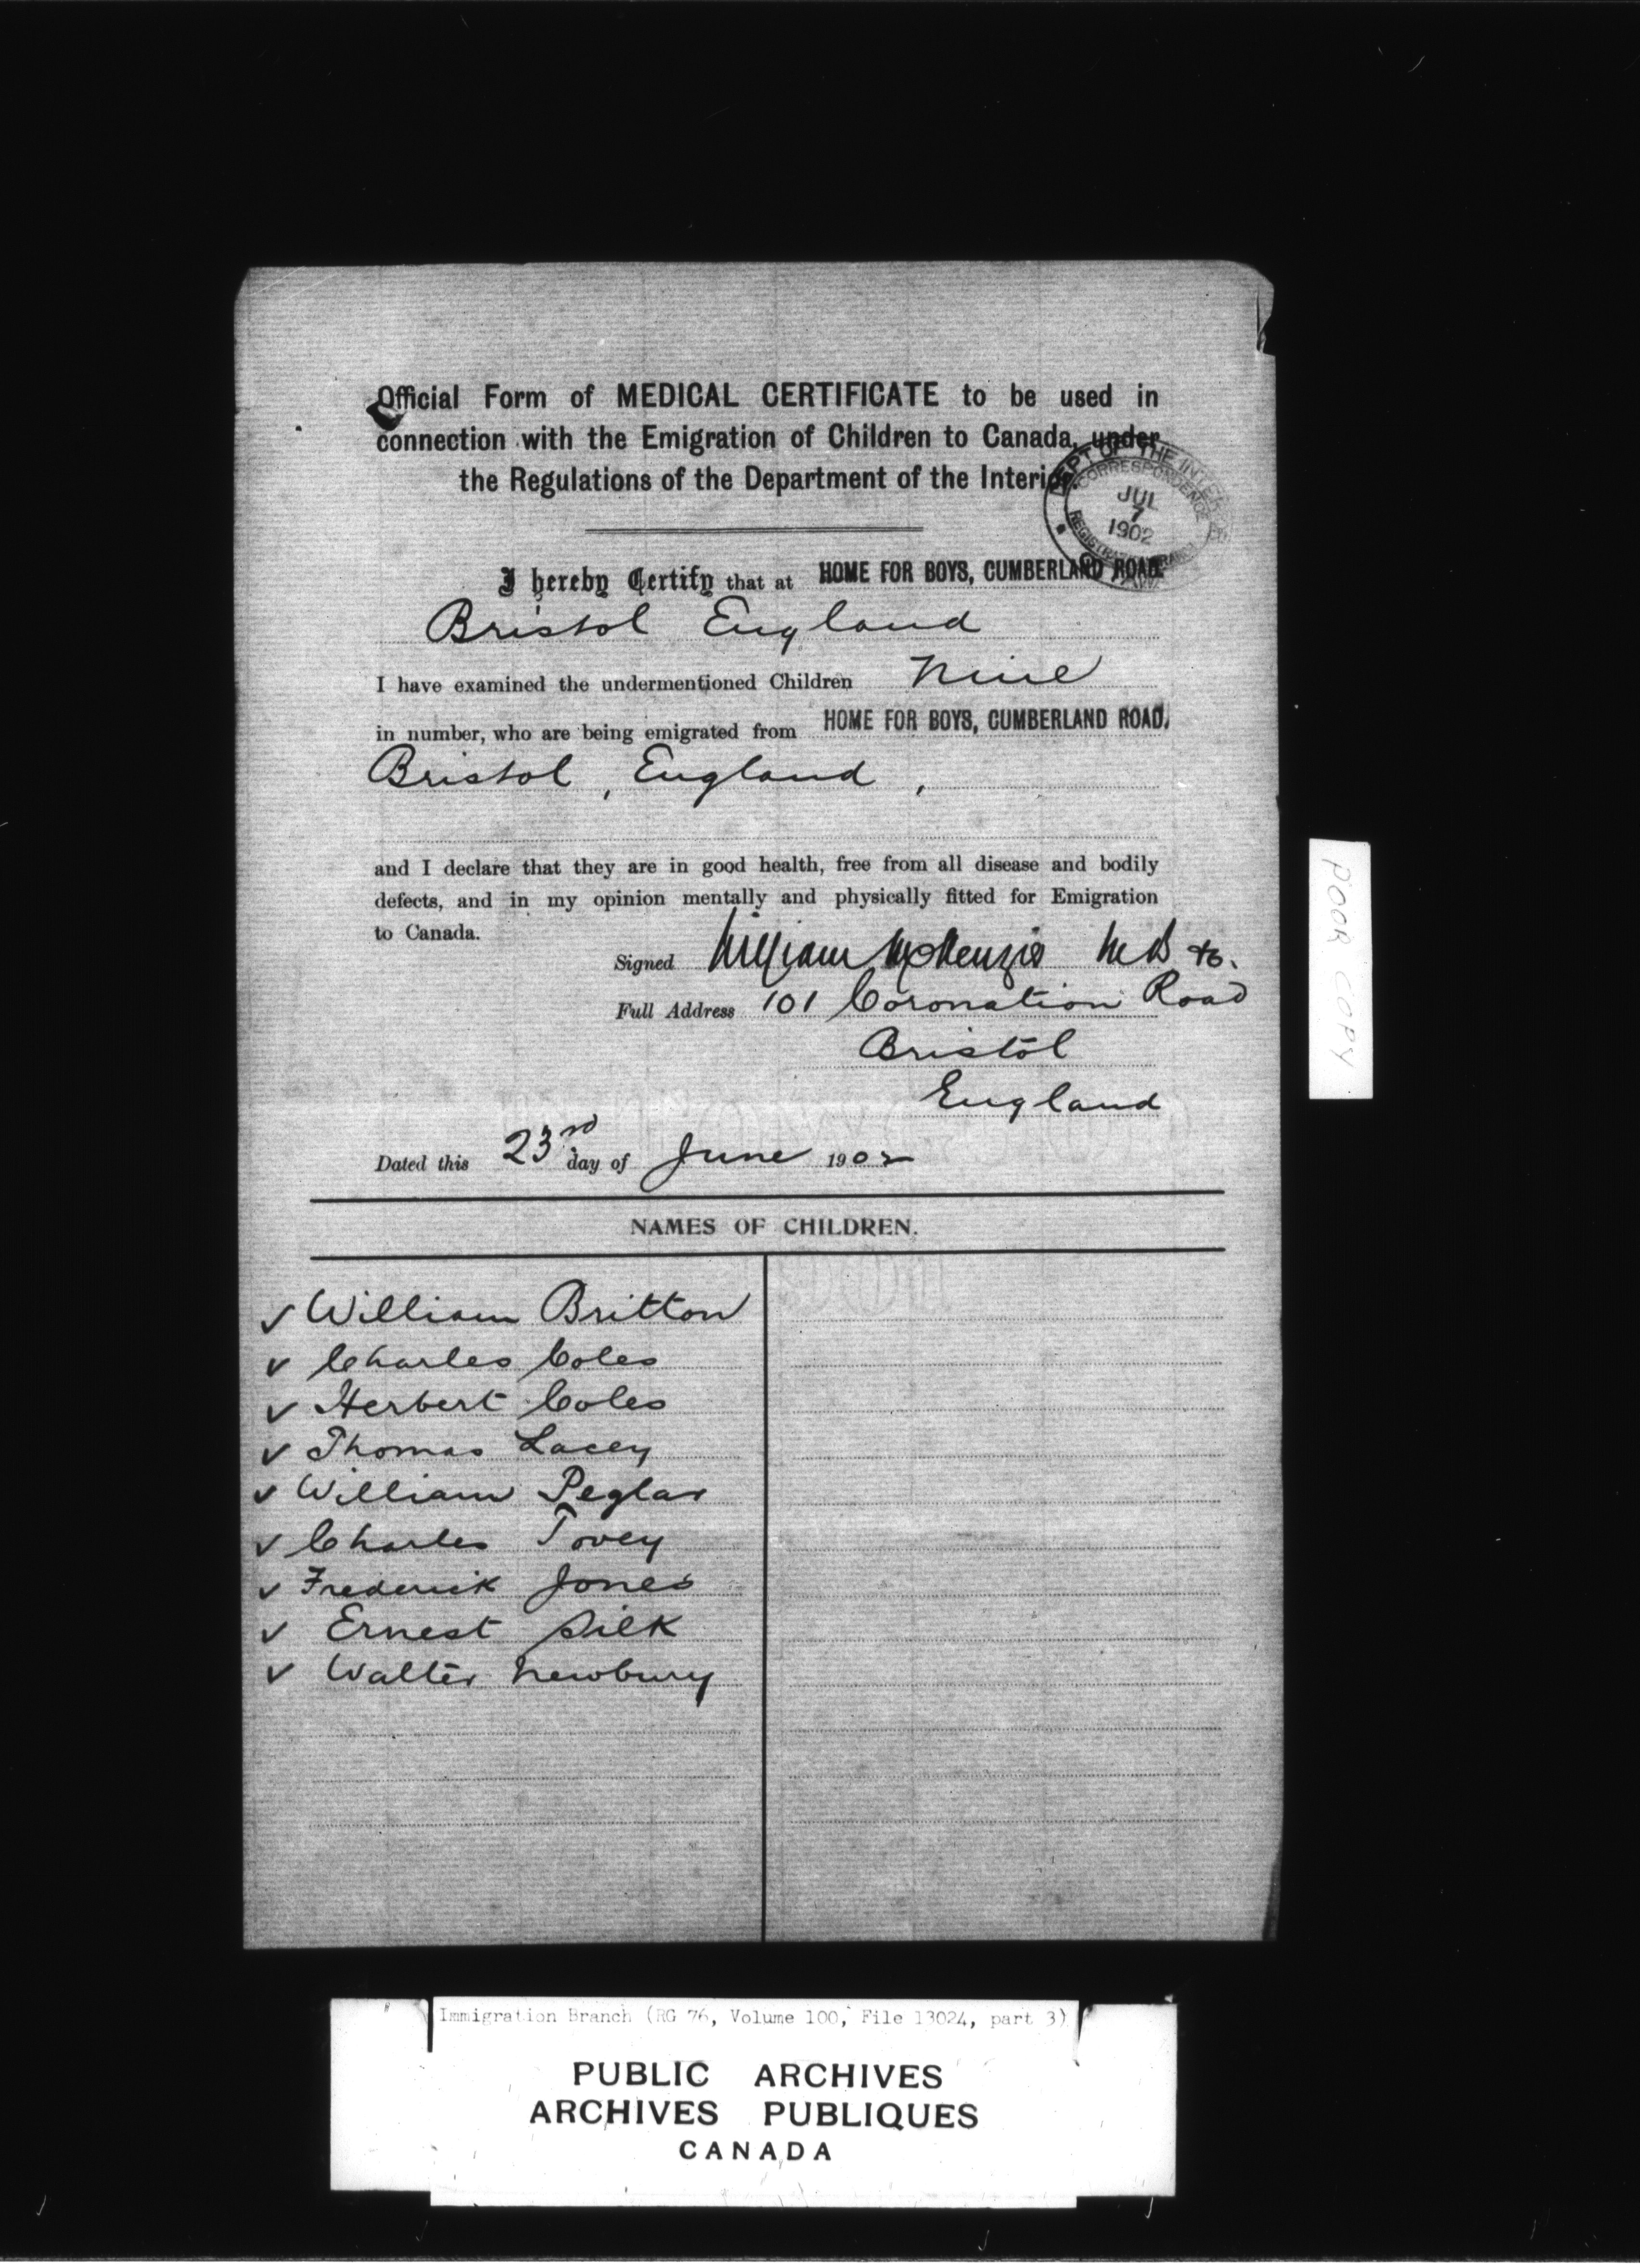 Official Form of MEDICAL CERTIFICATE to be used in
connection with the Emigration of Children to Canada, under
the Regulations of the Department of the Interior.
DEPT OF THE INTERIOR
CORRESPONDENCE
JUL
7
1902
REGISTRATION BRANCH
I hereby Certify that at HOME FOR BOYS, CUMBERLAND ROAD.
Bristol England
I have examined the undermentioned Children Nine
in number, who are being emigrated from HOME FOR BOYS, CUMBERLAND ROAD,
Bristol, England,
and I declare that they are in good health, free from all disease and bodily
defects, and in my opinion mentally and physically fitted for Emigration
to Canada.
Signed William McKenzie MB &c.
Full Address 101 Coronation Road
Bristol
England
Dated this 23rd day of June 1902
NAMES OF CHILDREN.
✓ William Britton
✓ Charles Coles
✓ Herbert Coles
✓ Thomas Lacey
✓ William Peglar
✓ Charles Tovey
✓ Frederick Jones
✓ Ernest Silk
✓ Walter Newbury
POOR COPY
Immigration Branch (RG 76, Volume 100, File 13024, part 3)
PUBLIC ARCHIVES
ARCHIVES PUBLIQUES
CANADA